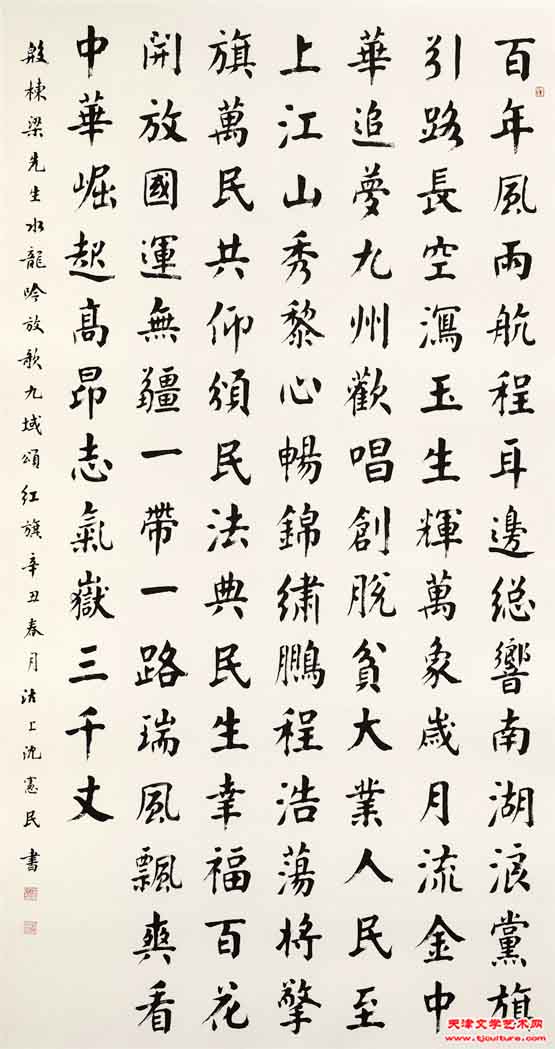 百年風雨航程耳邊總響南湖浪黨旗
引路長空瀉玉生輝萬象歲月流金中
華追夢九州歡唱創脫貧大業人民至
上江山秀黎心暢錦繡鵬程浩蕩將擎
旗萬民共仰頌民法典民生幸福百花
開放國運無疆一帶一路瑞風飄爽看
中華崛起高昂志氣嶽三千丈
殷棟梁先生水龍吟放歌九域頌紅旗辛丑春月沽上沈憲民書
天津文学艺术网
www.tjculture.com